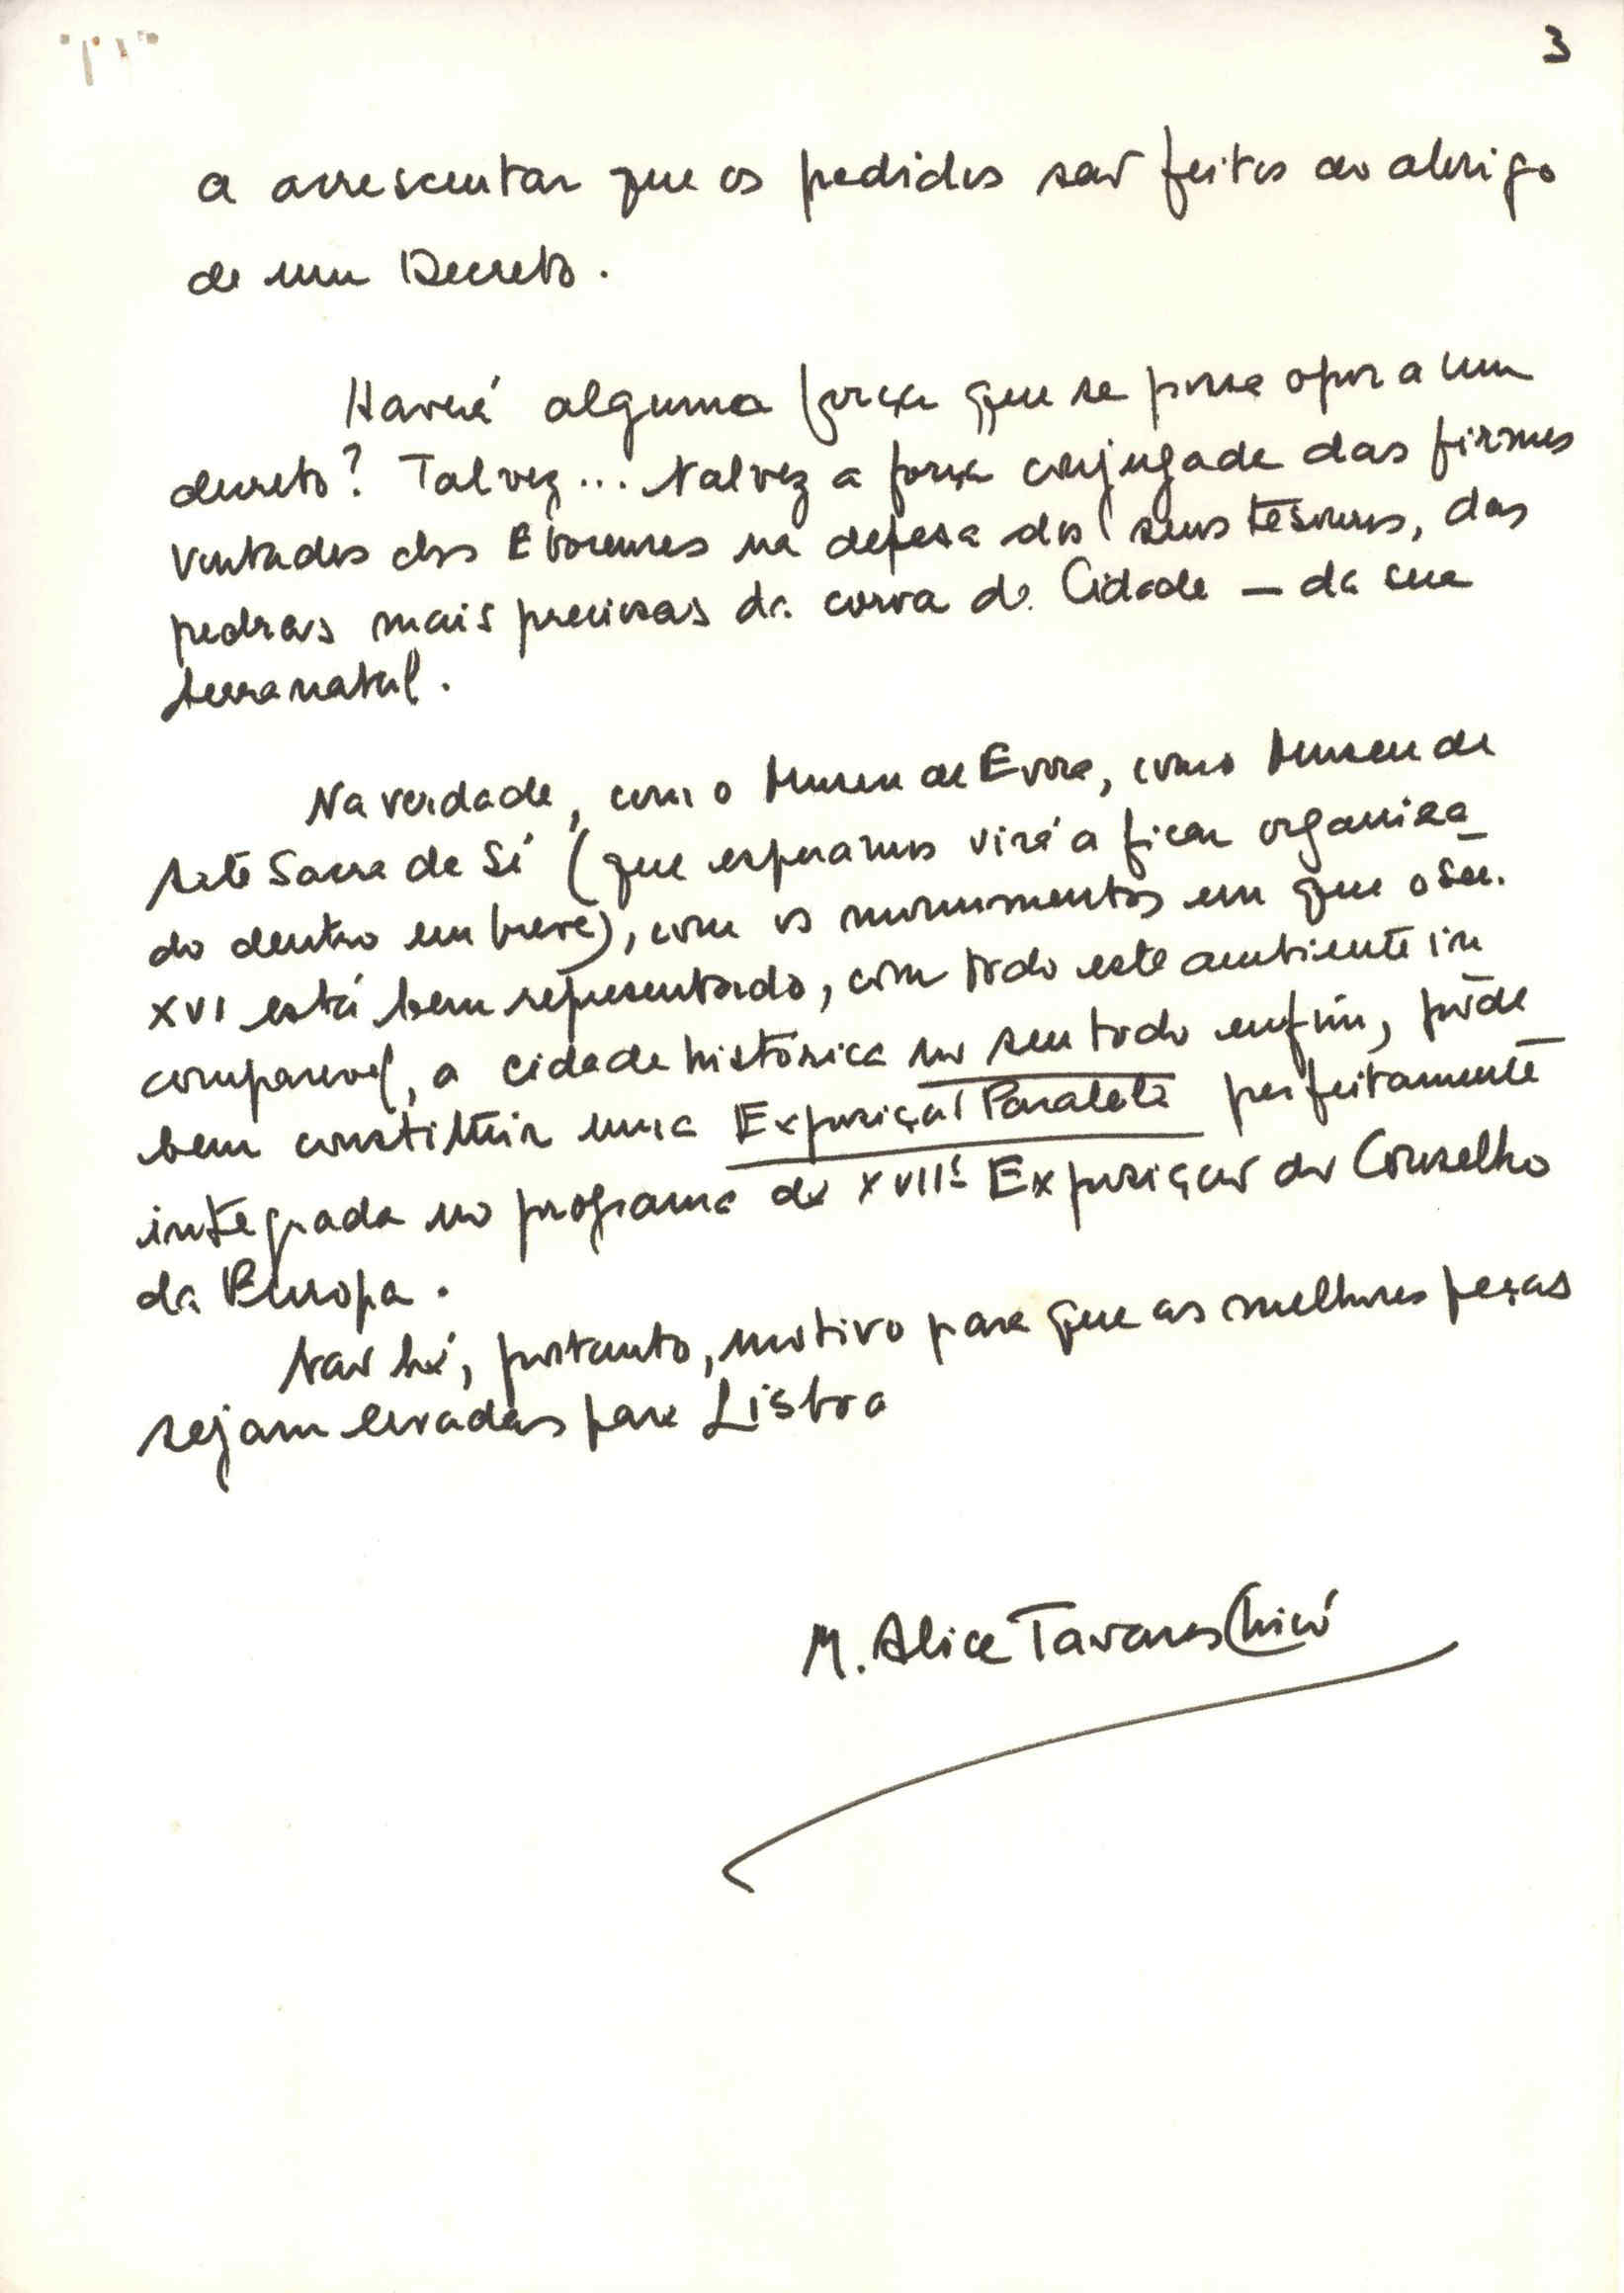 3
a acrescentar que os pedidos são feitos ao abrigo
de um Decreto.
Haverá alguma força que se possa opor a um
decreto? Talvez... Talvez a força conjugada das firmes
vontades dos Eborenses na defesa dos seus tesouros, das
pedras mais preciosas da coroa da Cidade — da sua
terra natal.
Na verdade, com o Museu de Evora, com o Museu de
Arte Sacra da Sé (que esperamos virá a ficar organiza_
do dentro em breve), com os monumentos em que o séc.
XVI está bem representado, com todo este ambiente in_
comparavel, a cidade histórica no seu todo enfim, pode
bem constituir uma Exposição Paralela perfeitamente
integrada no programa da XVIIª Exposição do Conselho
da Europa.
Não há, portanto, motivo para que as melhores peças
sejam levadas para Lisboa
M. Alice Tavares Chicó